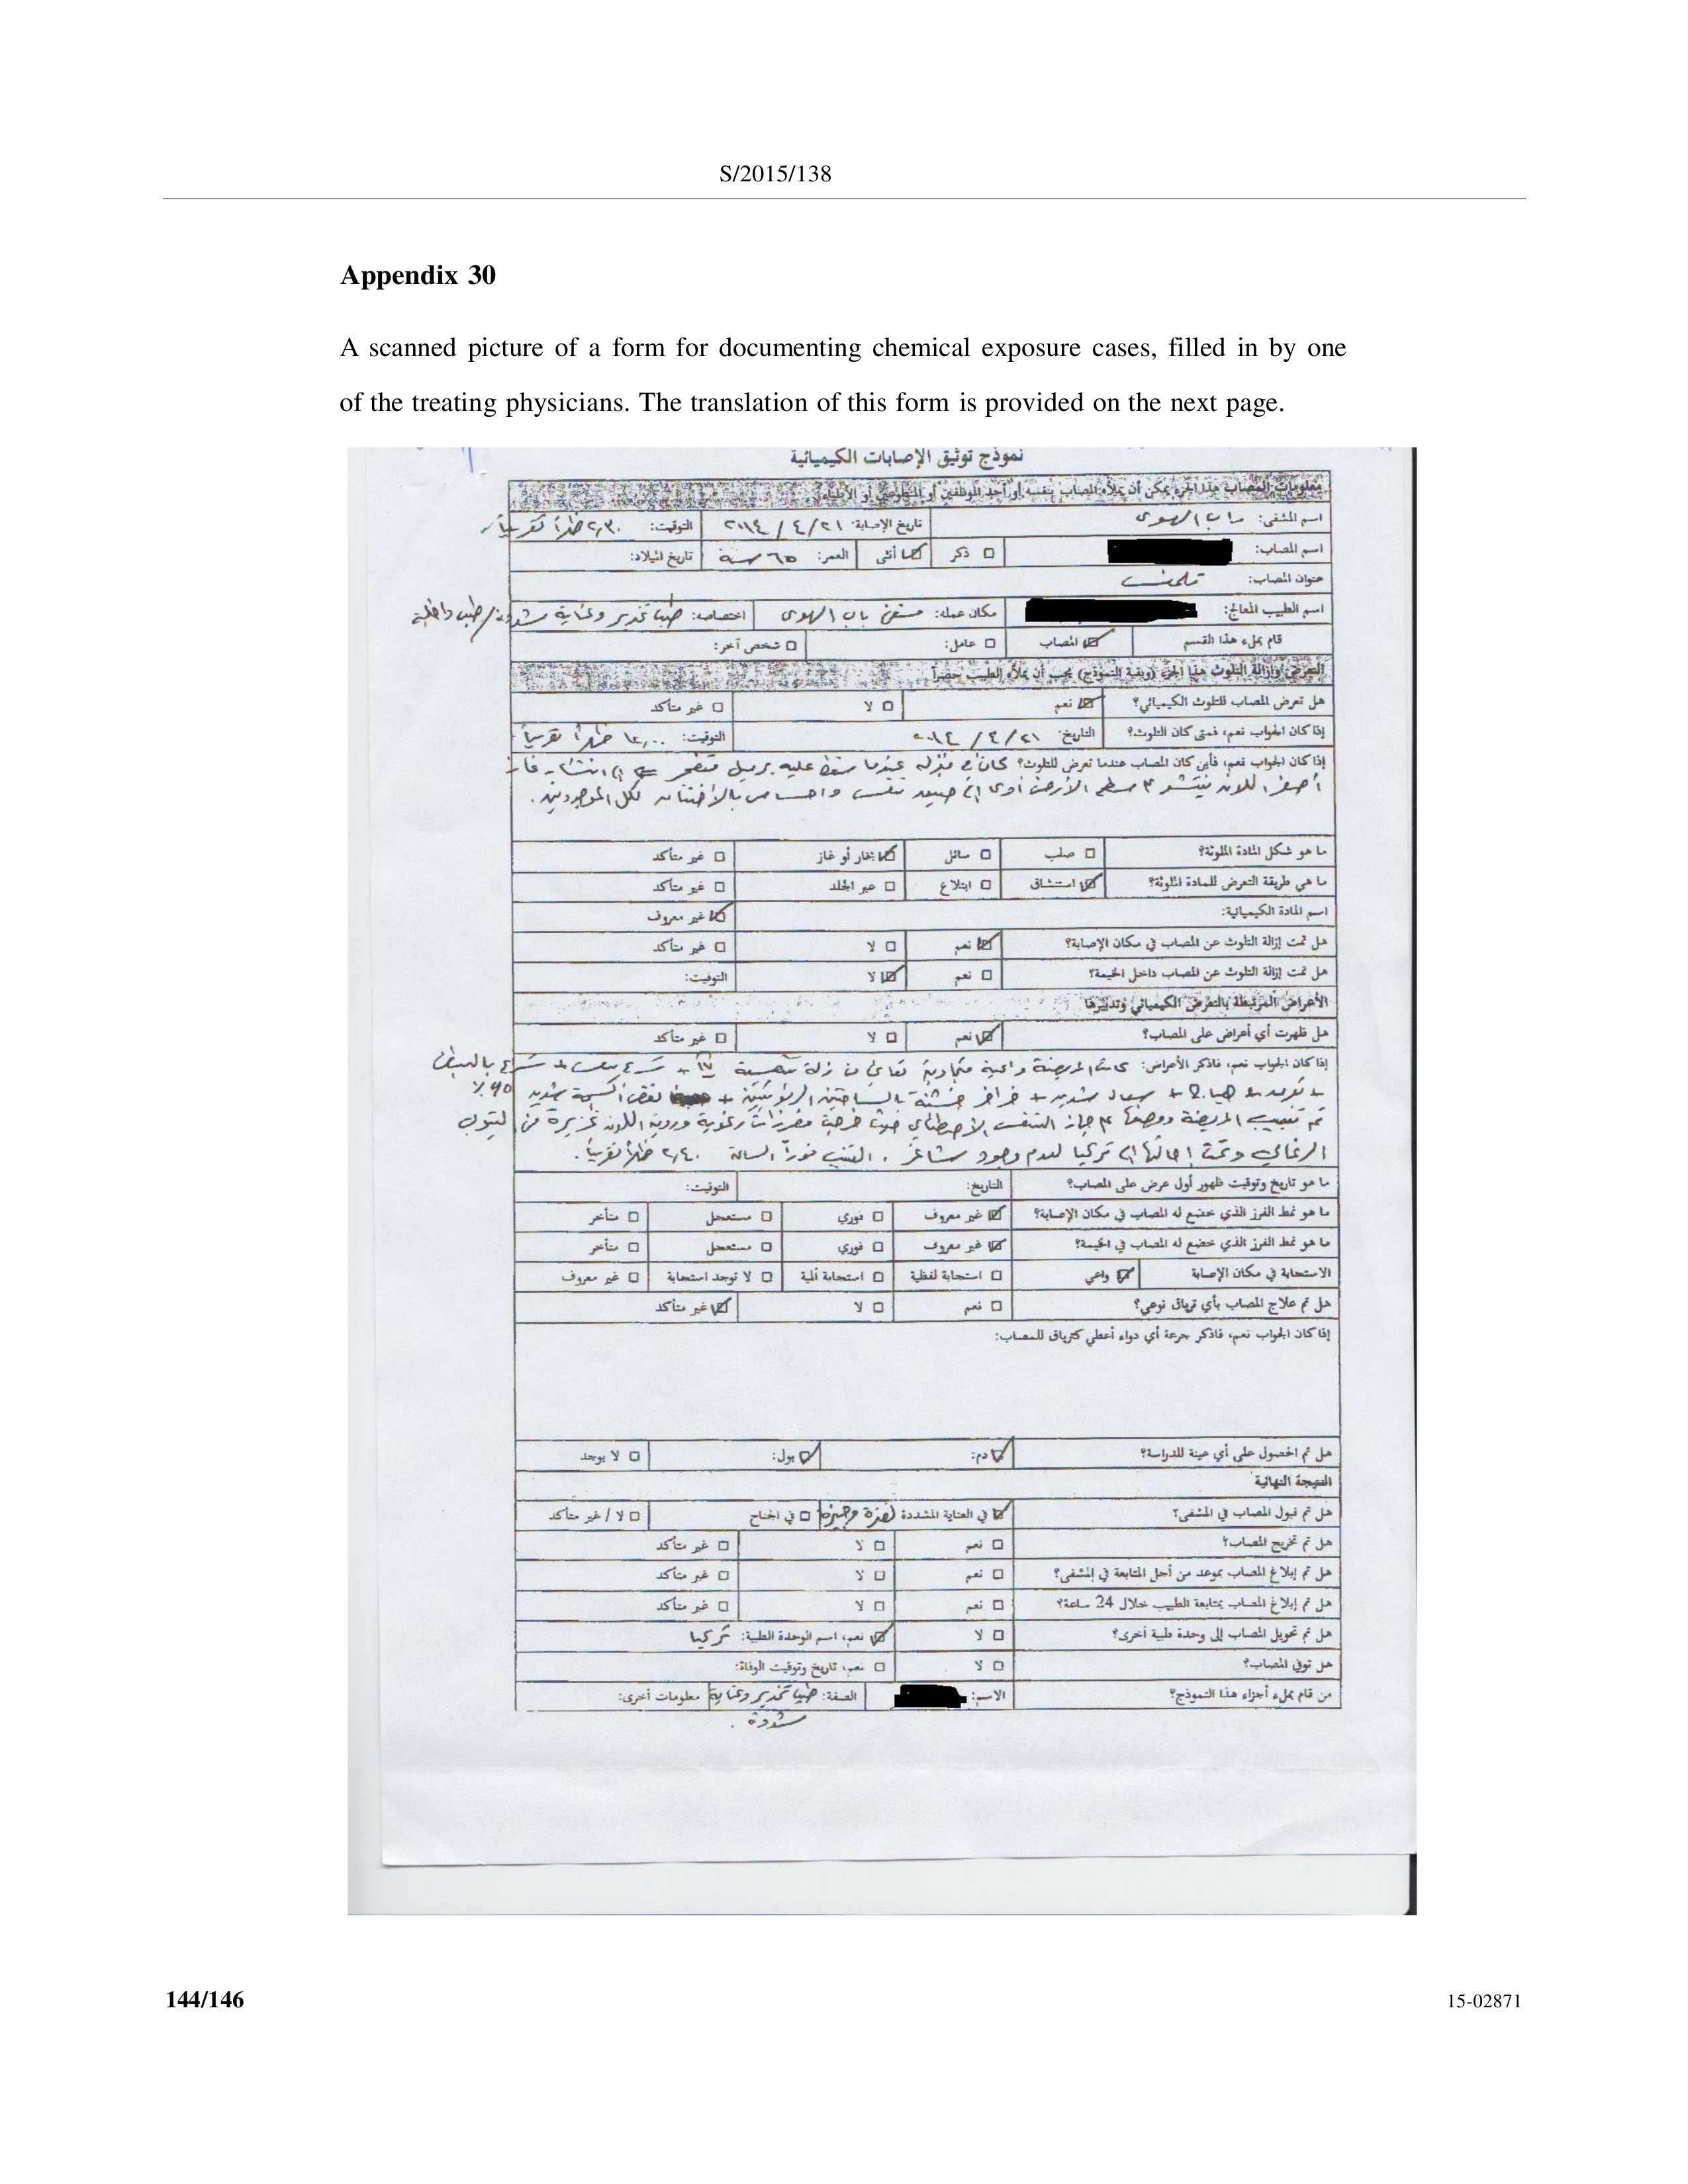 S/2015/138
Appendix 30
A scanned picture of a form for documenting chemical exposure cases, filled in by one
of the treating physicians. The translation of this form is provided on the next page.
نموذج توثيق الإصابات الكيميائية
معلومات المصاب هذا الجزء يمكن أن يملأه المصاب بنفسه أو أحد الموظفين أو المتطوعين أو الأطباء
اسم المشفى: باب الهوى تاريخ الإصابة: ٢٠١٤/٤/٢١ التوقيت: ٢,٣٠ ظهراً تقريباً
اسم المصاب: ذكر أنثى العمر: ٦٥ سنة تاريخ الميلاد:
عنوان المصاب: تلمنس
اسم الطبيب المعالج: مكان عمله: مشفى باب الهوى اختصاصه: طب تخدير وعناية مشددة/طب داخلية
قام بملء هذا القسم المصاب عامل: شخص آخر:
التعرض وإزالة التلوث هذا الجزء (وبقية النموذج) يجب أن يملأه الطبيب حصراً
هل تعرض المصاب للتلوث الكيميائي؟ نعم لا غير متأكد
إذا كان الجواب نعم، فمتى كان التلوث؟ التاريخ: ٢٠١٤/٤/٢١ التوقيت: ١٢,٠٠ ظهراً تقريباً
إذا كان الجواب نعم، فأين كان المصاب عندما تعرض للتلوث؟ كان في منزله عندما سقط عليه برميل متفجر انتشار غاز
أصفر اللون سطح الأرض أدى إلى ضيق تنفس وإحساس بالاختناق لكل الموجودين.
ما هو شكل المادة الملوثة؟ صلب سائل بخار أو غاز غير متأكد
ما هي طريقة التعرض للمادة الملوثة؟ استنشاق ابتلاع عبر الجلد غير متأكد
اسم المادة الكيميائية: غير معروف
هل تمت إزالة التلوث عن المصاب في مكان الإصابة؟ نعم لا غير متأكد
هل تمت إزالة التلوث عن المصاب داخل الخيمة؟ نعم لا التوقيت:
الأعراض المرتبطة بالتعرض الكيميائي وتدبيرها
هل ظهرت أي أعراض على المصاب؟ نعم لا غير متأكد
إذا كان الجواب نعم، فاذكر الأعراض: كانت المريضة واعية متجاوبة تعاني من زلة تنفسية
+ سعال شديد + خراخر خشنة بالساحتين الرئويتين + نقص أكسجة شديد
تم تنبيب المريضة ووضعها جهاز التنفس الاصطناعي حيث خرجت مفرزات رغوية وردية اللون غزيرة من أنبوب
الرغامى وتمت إحالتها إلى تركيا لعدم وجود شاغر. فوراً الساعة ٢,٤٠ ظهراً تقريباً.
ما هو تاريخ وتوقيت ظهور أول عرض على المصاب؟ التاريخ: التوقيت:
ما هو نمط الفرز الذي خضع له المصاب في مكان الإصابة؟ غير معروف فوري مستعجل متأخر
ما هو نمط الفرز الذي خضع له المصاب في الخيمة؟ غير معروف فوري مستعجل متأخر
الاستجابة في مكان الإصابة واعي استجابة لفظية استجابة ألمية لا توجد استجابة غير معروف
هل تم علاج المصاب بأي ترياق نوعي؟ نعم لا غير متأكد
إذا كان الجواب نعم، فاذكر جرعة أي دواء أعطي كترياق للمصاب:
هل تم الحصول على أي عينة للدراسة؟ دم: بول: لا يوجد
النتيجة النهائية
هل تم قبول المصاب في المشفى؟ في العناية المشددة لفترة وجيزة في الجناح لا / غير متأكد
هل تم تخريج المصاب؟ نعم لا غير متأكد
هل تم إبلاغ المصاب بموعد من أجل المتابعة في المشفى؟ نعم لا غير متأكد
هل تم إبلاغ المصاب بمتابعة الطبيب خلال 24 ساعة؟ نعم لا غير متأكد
هل تم تحويل المصاب إلى وحدة طبية أخرى؟ لا نعم، اسم الوحدة الطبية: تركيا
هل توفي المصاب؟ لا نعم، تاريخ وتوقيت الوفاة:
من قام بملء أجزاء هذا النموذج؟ الاسم: الصفة: طب تخدير وعناية معلومات أخرى:
مشددة.
144/146
15-02871